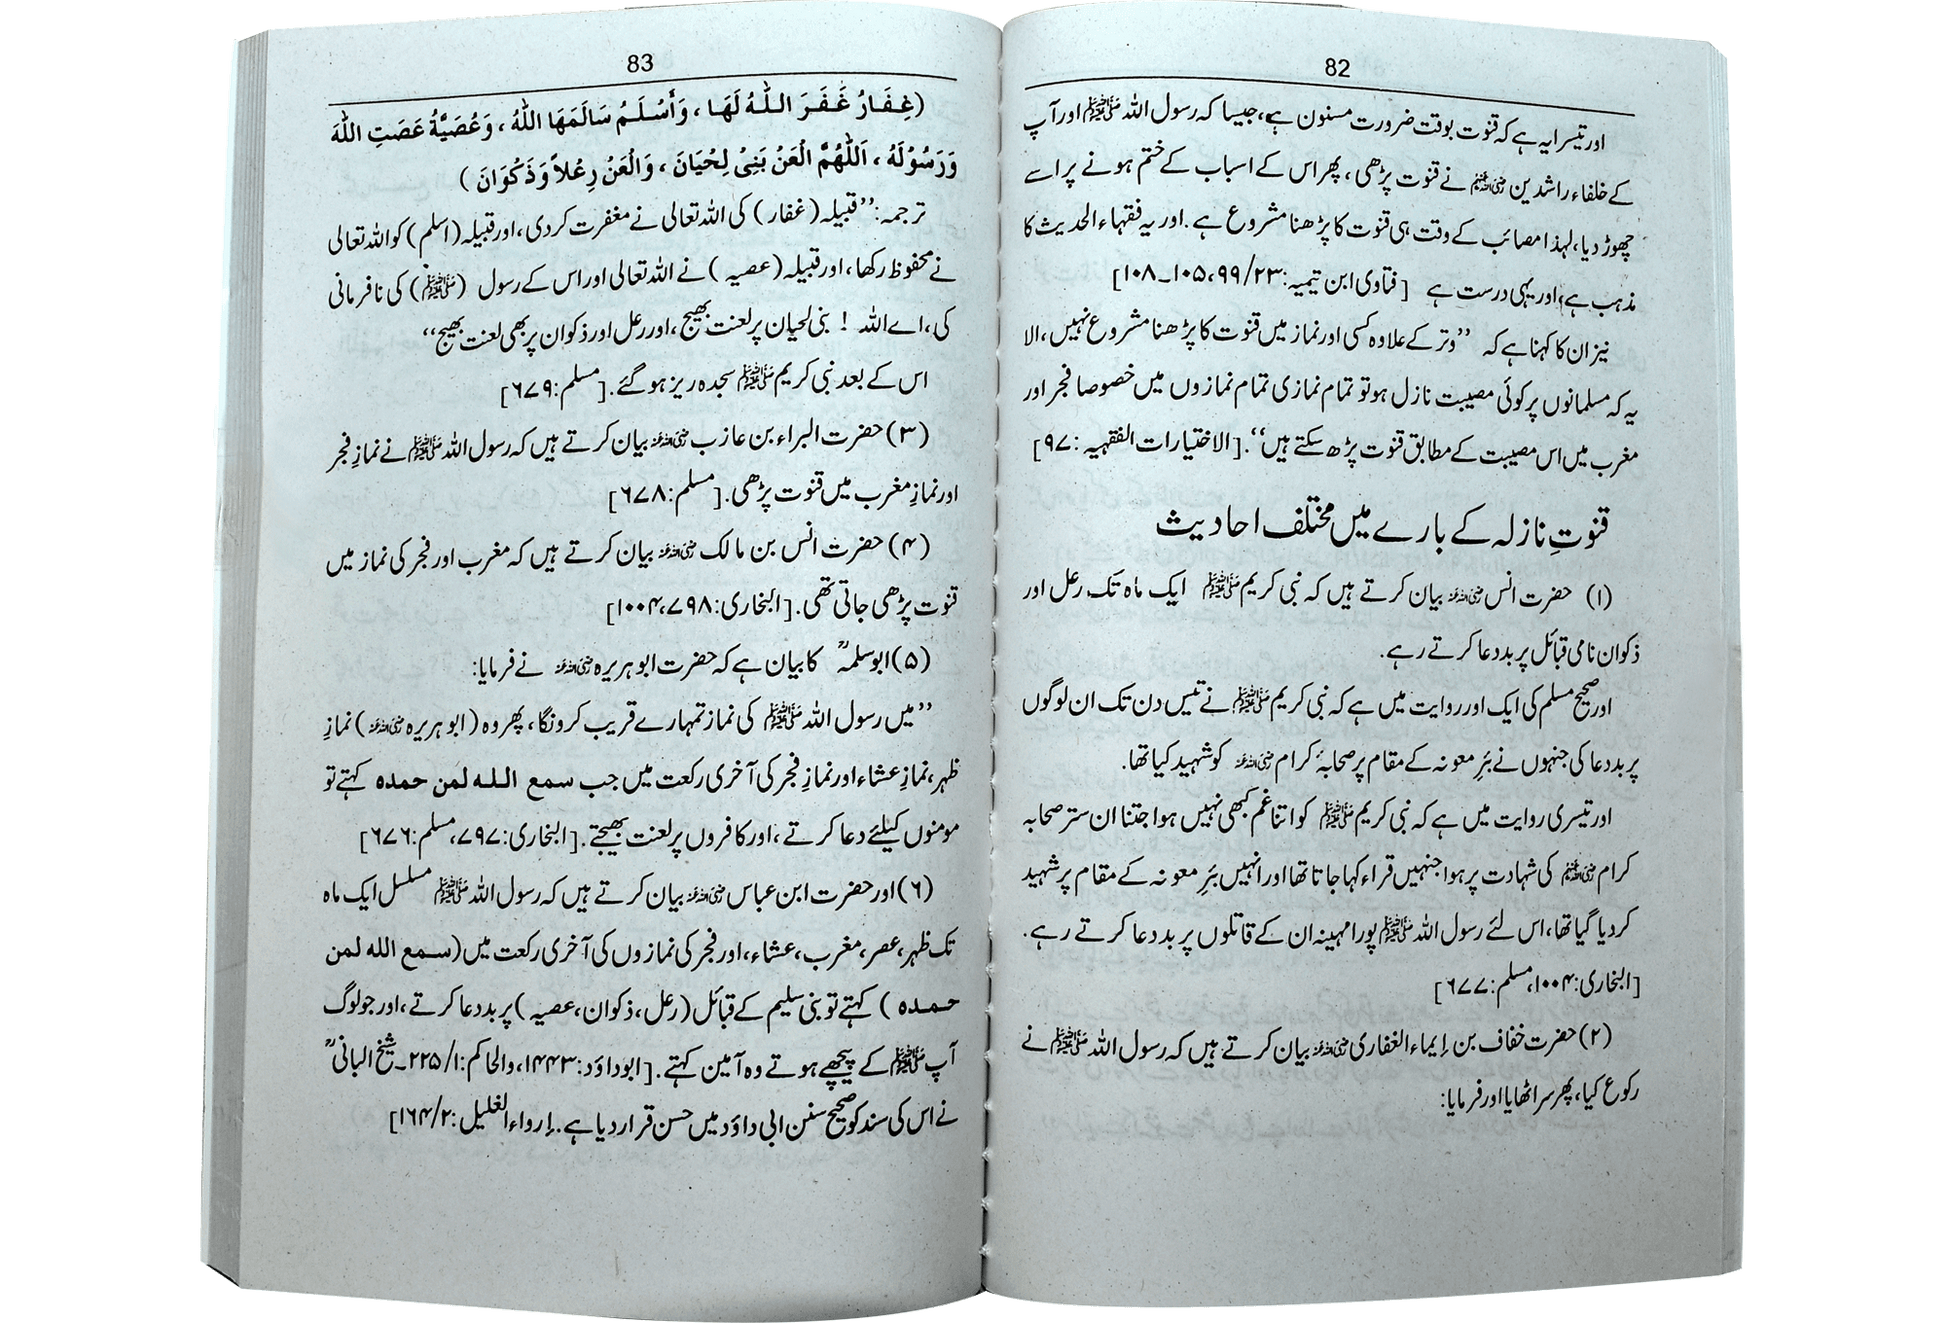 82
اور تیسرا یہ ہے کہ قنوت بوقت ضرورت مسنون ہے، جیسا کہ رسول اللہ ﷺ اور آپ
کے خلفاء راشدین رضی اللہ عنہم نے قنوت پڑھی، پھر اس کے اسباب کے ختم ہونے پر اسے
چھوڑ دیا، لہذا مصائب کے وقت ہی قنوت کا پڑھنا مشروع ہے. اور یہ فقہاء الحدیث کا
مذہب ہے، اور یہی درست ہے [فتاوی ابن تیمیہ: ۲۳/۹۹، ۱۰۵۔۱۰۸]
نیز ان کا کہنا ہے کہ ’’وتر کے علاوہ کسی اور نماز میں قنوت کا پڑھنا مشروع نہیں، الا
یہ کہ مسلمانوں پر کوئی مصیبت نازل ہو تو تمام نمازی تمام نمازوں میں خصوصا فجر اور
مغرب میں اس مصیبت کے مطابق قنوت پڑھ سکتے ہیں‘‘. [الاختیارات الفقہیہ: ۹۷]
قنوتِ نازلہ کے بارے میں مختلف احادیث
(۱) حضرت انس رضی اللہ عنہ بیان کرتے ہیں کہ نبی کریم ﷺ ایک ماہ تک رعل اور
ذکوان نامی قبائل پر بددعا کرتے رہے.
اور صحیح مسلم کی ایک اور روایت میں ہے کہ نبی کریم ﷺ نے تیس دن تک ان لوگوں
پر بددعا کی جنہوں نے بئرِ معونہ کے مقام پر صحابۂ کرام رضی اللہ عنہم کو شہید کیا تھا.
اور تیسری روایت میں ہے کہ نبی کریم ﷺ کو اتنا غم کبھی نہیں ہوا جتنا ان ستر صحابہ
کرام رضی اللہ عنہم کی شہادت پر ہوا جنہیں قراء کہا جاتا تھا اور انہیں بئرِ معونہ کے مقام پر شہید
کر دیا گیا تھا، اس لئے رسول اللہ ﷺ پورا مہینہ ان کے قاتلوں پر بددعا کرتے رہے.
[البخاری: ۱۰۰۴، مسلم: ۶۷۷]
(۲) حضرت خفاف بن إیماء الغفاری رضی اللہ عنہ بیان کرتے ہیں کہ رسول اللہ ﷺ نے
رکوع کیا، پھر سر اٹھایا اور فرمایا:
83
(غِفَارُ غَفَرَ اللّٰهُ لَهَا، وَأَسْلَمُ سَالَمَهَا اللّٰهُ، وَعُصَيَّةُ عَصَتِ اللّٰهَ
وَرَسُوْلَهُ، اَللّٰهُمَّ الْعَنْ بَنِيْ لِحْيَانَ، وَالْعَنْ رِعْلاً وَذَكْوَانَ)
ترجمہ: ’’قبیلہ (غفار) کی اللہ تعالی نے مغفرت کر دی، اور قبیلہ (اسلم) کو اللہ تعالی
نے محفوظ رکھا، اور قبیلہ (عصیہ) نے اللہ تعالی اور اس کے رسول (ﷺ) کی نافرمانی
کی، اے اللہ ! بنی لحیان پر لعنت بھیج، اور رعل اور ذکوان پر بھی لعنت بھیج‘‘
اس کے بعد نبی کریم ﷺ سجدہ ریز ہو گئے. [مسلم: ۶۷۹]
(۳) حضرت البراء بن عازب رضی اللہ عنہ بیان کرتے ہیں کہ رسول اللہ ﷺ نے نمازِ فجر
اور نمازِ مغرب میں قنوت پڑھی. [مسلم: ۶۷۸]
(۴) حضرت انس بن مالک رضی اللہ عنہ بیان کرتے ہیں کہ مغرب اور فجر کی نماز میں
قنوت پڑھی جاتی تھی. [البخاری: ۷۹۸، ۱۰۰۴]
(۵) ابو سلمہؒ کا بیان ہے کہ حضرت ابو ہریرہ رضی اللہ عنہ نے فرمایا:
’’میں رسول اللہ ﷺ کی نماز تمہارے قریب کرونگا، پھر وہ (ابو ہریرہ رضی اللہ عنہ) نمازِ
ظہر، نمازِ عشاء اور نمازِ فجر کی آخری رکعت میں جب سمع اللہ لمن حمدہ کہتے تو
مومنوں کیلئے دعا کرتے، اور کافروں پر لعنت بھیجتے. [البخاری: ۷۹۷، مسلم: ۶۷۶]
(۶) اور حضرت ابن عباس رضی اللہ عنہ بیان کرتے ہیں کہ رسول اللہ ﷺ مسلسل ایک ماہ
تک ظہر، عصر، مغرب، عشاء، اور فجر کی نمازوں کی آخری رکعت میں (سمع اللہ لمن
حمدہ) کہتے تو بنی سلیم کے قبائل (رعل، ذکوان، عصیہ) پر بددعا کرتے، اور جو لوگ
آپ ﷺ کے پیچھے ہوتے وہ آمین کہتے. [ابو داؤد: ۱۴۴۳، والحاکم: ۱/۲۲۵۔ شیخ البانیؒ
نے اس کی سند کو صحیح سنن ابی داؤد میں حسن قرار دیا ہے. إرواء الغلیل: ۲/۱۶۴]